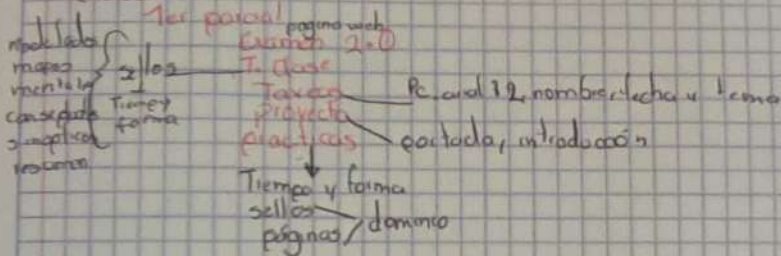 1er parcial
pagina web
Examen 2.0
T. clase
Tarea
Proyecto
practicas
modelado
mapas
mental
conceptual
sinoptico
resumen
sellos
Tiempo y
forma
Pc, arial 12, nombre, fecha y tema
portada, introducción
Tiempo y forma
sellos
páginas / dominio